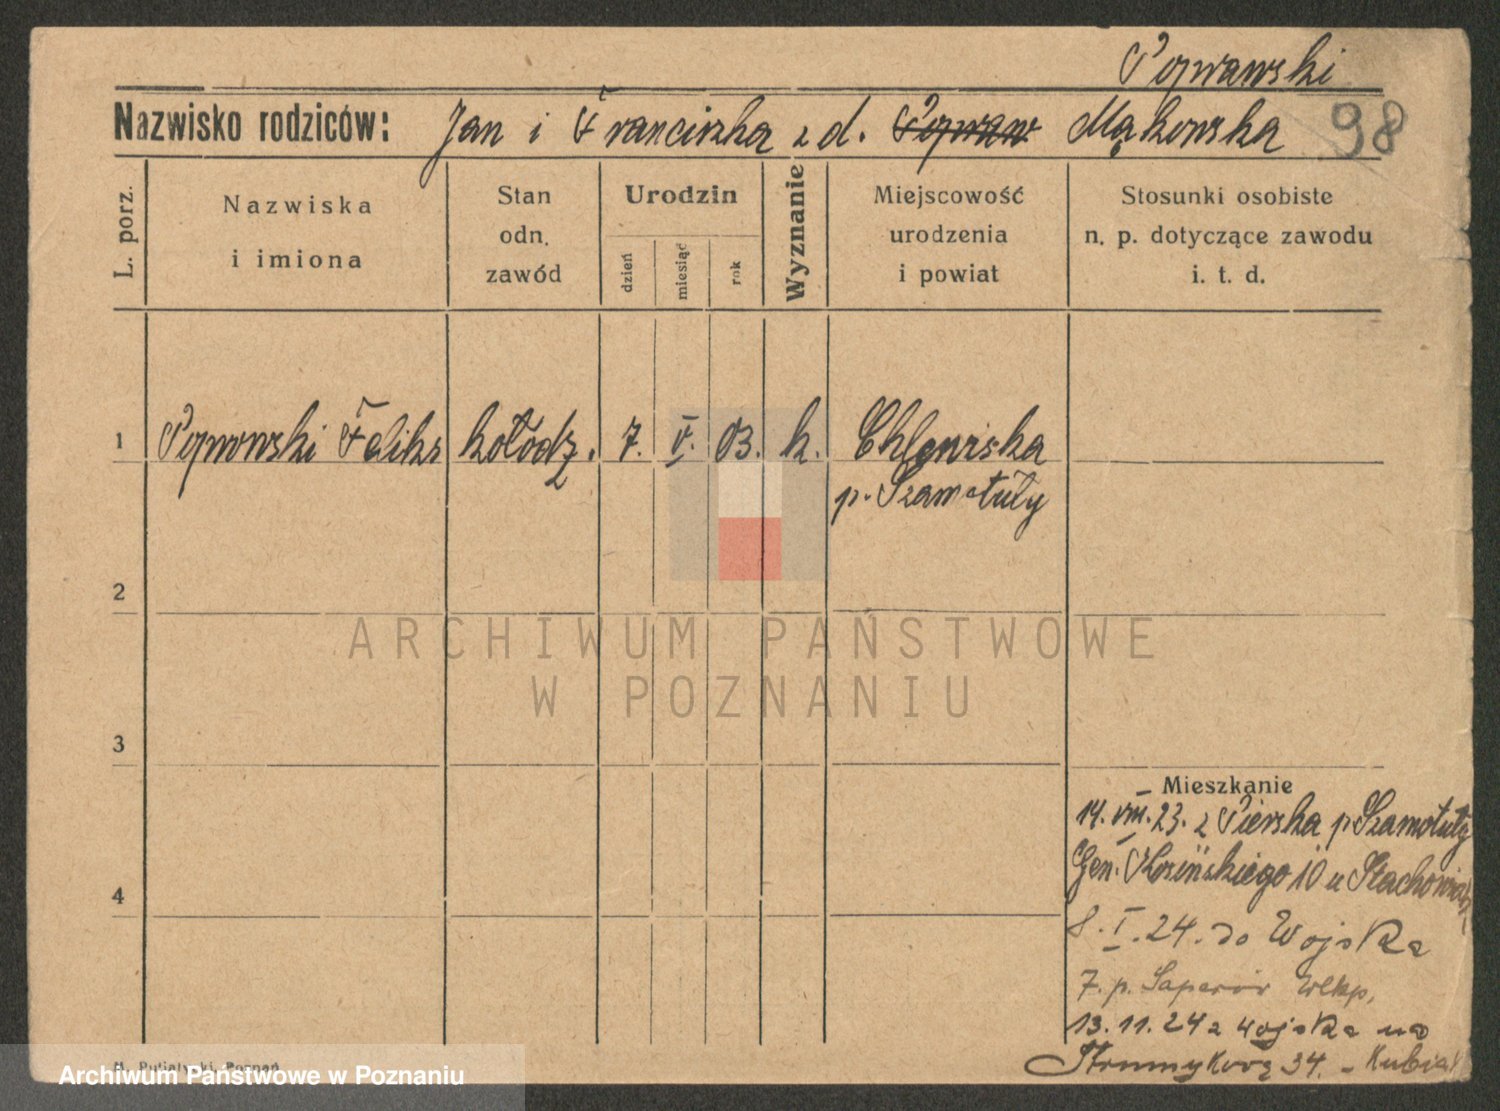 Poprawski
Nazwisko rodziców: Jan i Franciszka z d. Mąkowska 98
L. porz.
Nazwiska
i imiona
Stan
odn.
zawód
Urodzin
dzień
miesiąc
rok
Wyznanie
Miejscowość
urodzenia
i powiat
Stosunki osobiste
n. p. dotyczące zawodu
i. t. d.
1 Feliks kołodz. 7. V. 03. k. Chlewiska
p. Szamotuły
2
3
4
Mieszkanie
14. VIII. 23. z Pierska p Szamotuły
Gen. Kosińskiego 10 u
8. I. 24. do Wojska
7. p. Saperów Wlkp.
13. 11. 24 z wojska na
34. - Kubiak
Poznań
ARCHIWUM PAŃSTWOWE
W POZNANIU
Archiwum Państwowe w Poznaniu